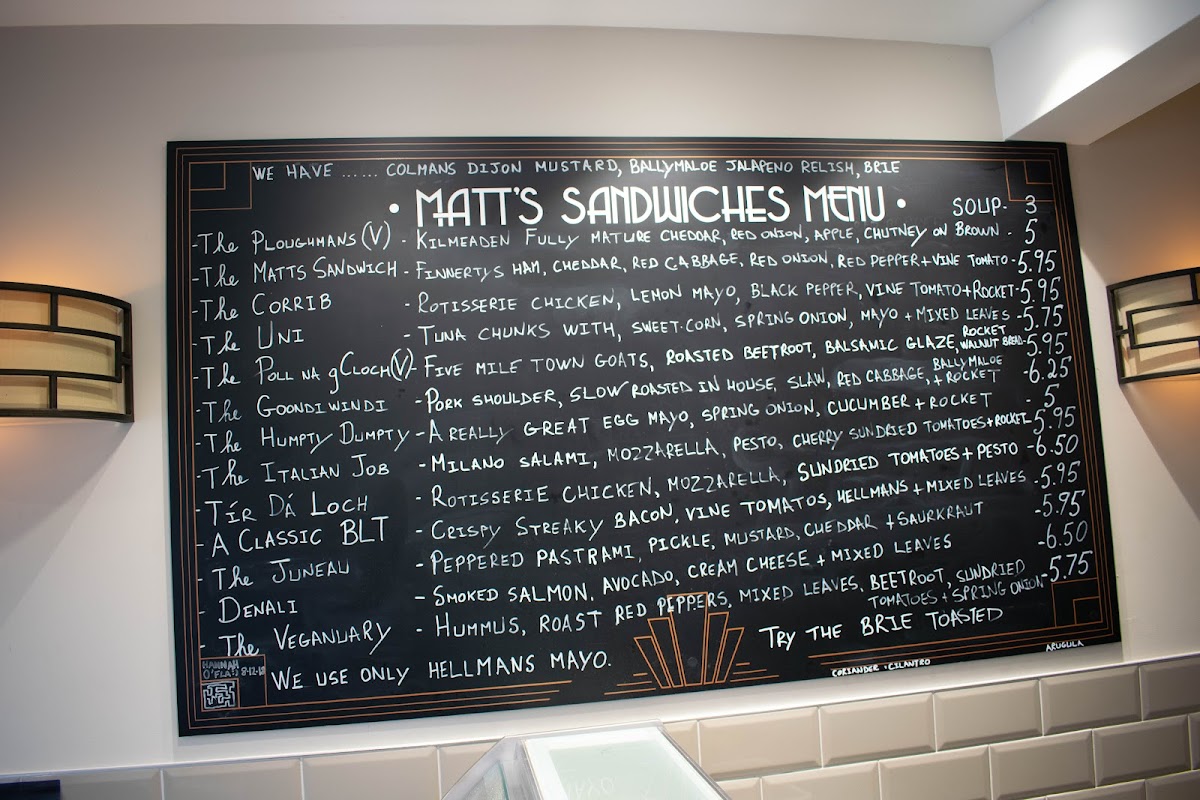 WE HAVE ...... COLMANS DIJON MUSTARD, BALLYMALOE JALAPENO RELISH, BRIE
• MATT'S SANDWICHES MENU •
SOUP - 3
- The PLOUGHMANS (V) - KILMEADEN FULLY MATURE CHEDDAR, RED ONION, APPLE, CHUTNEY ON BROWN - 5
- The MATTS SANDWICH - FINNERTYS HAM, CHEDDAR, RED CABBAGE, RED ONION, RED PEPPER + VINE TOMATO - 5.95
- The CORRIB - ROTISSERIE CHICKEN, LEMON MAYO, BLACK PEPPER, VINE TOMATO + ROCKET - 5.95
- The UNI - TUNA CHUNKS WITH, SWEET-CORN, SPRING ONION, MAYO + MIXED LEAVES - 5.75
- The POLL NA gCLOCH (V) - FIVE MILE TOWN GOATS, ROASTED BEETROOT, BALSAMIC GLAZE, ROCKET WALNUT BREAD - 5.95
- The GOONDIWINDI - PORK SHOULDER, SLOW ROASTED IN HOUSE, SLAW, RED CABBAGE, BALLYMALOE + ROCKET - 6.25
- The HUMPTY DUMPTY - A REALLY GREAT EGG MAYO, SPRING ONION, CUCUMBER + ROCKET - 5
- The ITALIAN JOB - MILANO SALAMI, MOZZARELLA, PESTO, CHERRY SUNDRIED TOMATOES + ROCKET - 5.95
- TÍR DÁ LOCH - ROTISSERIE CHICKEN, MOZZARELLA, SUNDRIED TOMATOES + PESTO - 6.50
- A CLASSIC BLT - CRISPY STREAKY BACON, VINE TOMATOS, HELLMANS + MIXED LEAVES - 5.95
- The JUNEAU - PEPPERED PASTRAMI, PICKLE, MUSTARD, CHEDDAR + SAURKRAUT - 5.95
- DENALI - SMOKED SALMON, AVOCADO, CREAM CHEESE + MIXED LEAVES - 6.50
- The VEGANUARY - HUMMUS, ROAST RED PEPPERS, MIXED LEAVES, BEETROOT, SUNDRIED TOMATOES + SPRING ONION - 5.75
WE USE ONLY HELLMANS MAYO.
TRY THE BRIE TOASTED
CORIANDER · CILANTRO
ARUGULA
HANNAH